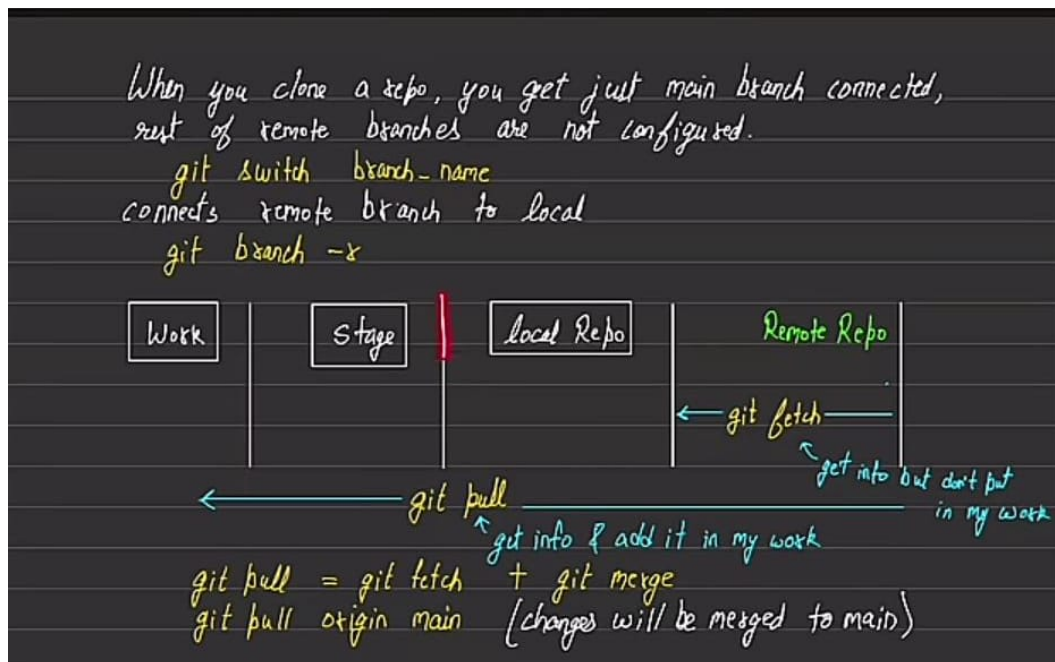 When you clone a repo, you get just main branch connected,
rest of remote branches are not configured.
git switch branch_name
connects remote branch to local
git branch -r
Work
Stage
local Repo
Remote Repo
git fetch
get info but don't put
in my work
git pull
get info & add it in my work
git pull = git fetch + git merge
git pull origin main (changes will be merged to main)